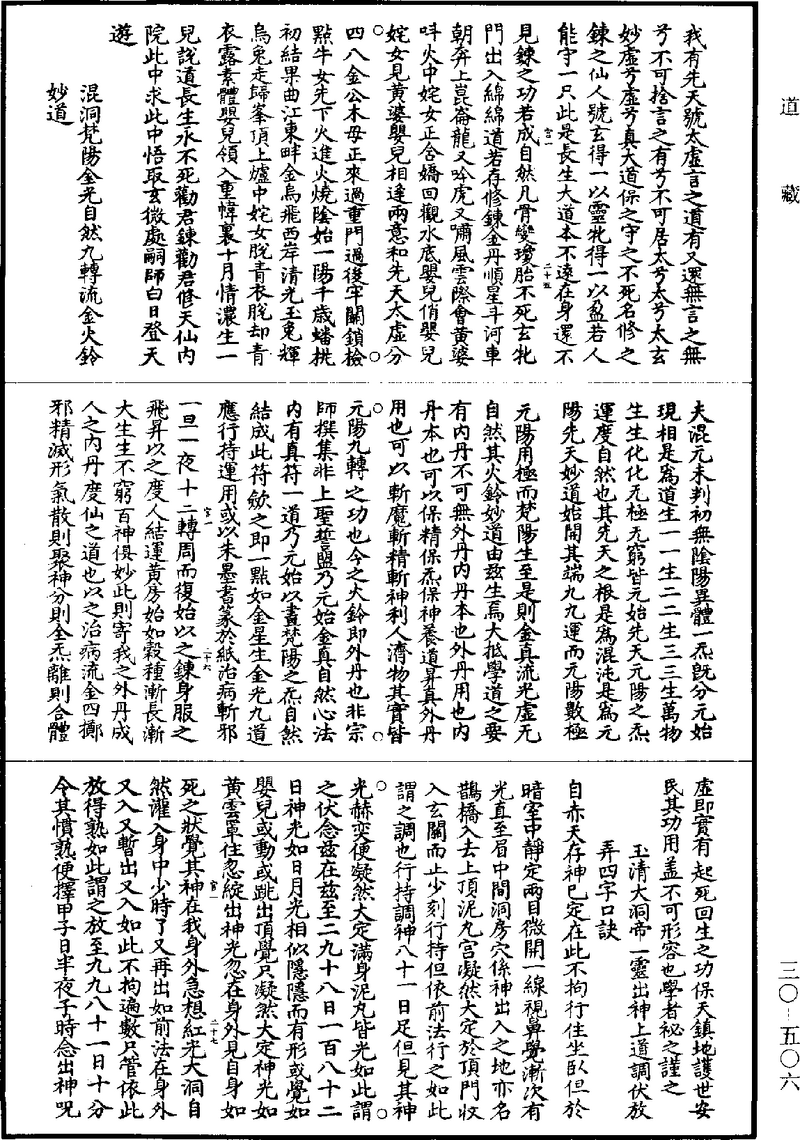 道藏
我有先天號太虛言之道有又還無言之無
兮不可捨言之有兮不可居太兮太兮太玄
妙虛兮虛兮真大道保之守之不死名修之
鍊之仙人號玄得一以靈牝得一以盈若人
能守一只此是長生大道本不遠在身還不
見鍊之功若成自然凡骨變瓊胎不死玄牝
門出入綿綿道若存修鍊金丹順星斗河車
朝奔上崑崙龍又吟虎又嘯風雲際會黃婆
呌火中姹女正含嬌回觀水底嬰兒俏嬰兒
姹女見黃婆嬰兒相逢兩意和先天太虛分
四八金公木母正來過重門過後牢關鎖撿
點牛女先下火進火燒陰始一陽千歲蟠桃
初結果曲江東畔金烏飛西岸清光玉兔輝
烏兔走歸峯頂上爐中姹女脫青衣脫却青
衣露素體嬰兒領入重幃裏十月情濃生一
兒說道長生永不死勸君鍊勸君修天仙內
院此中求此中悟取玄微處嗣師白日登天
遊
混洞梵陽金光自然九轉流金火鈴
妙道
夫混元未判初無陰陽異體一炁既分元始
現相是為道生一一生二二生三三生萬物
生生化化无極无窮皆元始先天元陽之炁
運度自然也其先天之根是為混沌是為元
陽先天妙道始開其端九九運而元陽數極
元陽用極而梵陽生至是則金真流光虛无
自然其火鈴妙道由茲生焉大抵學道之要
有內丹不可無外丹內丹本也外丹用也內
丹本也可以保精保炁保神養道昇真外丹
用也可以斬魔斬精斬神利人濟物其實皆
元陽九轉之功也今之火鈴即外丹也非宗
師撰集非上聖誓盟乃元始金真自然心法
內有真符一道乃元始以晝梵陽之炁自然
結成此符斂之即一點如金星生金光九道
應行持運用或以朱墨書篆於紙治病斬邪
一旦一夜十二轉周而復始以之鍊身服之
飛昇以之度人結運黃房始如穀種漸長漸
大生生不窮百神俱妙此則寄我之外丹成
人之內丹度仙之道也以之治病流金四擲
邪精滅形氣散則聚神分則全炁離則合體
虛即實有起死回生之功保天鎮地護世安
民其功用盖不可形容也學者秘之謹之
玉清大洞帝一靈出神上道調伏放
弄四字口訣
自亦天存神已定在此不拘行住坐臥但於
暗室中靜定兩目微開一線視鼻覺漸次有
光直至眉中間洞房穴係神出入之地亦名
鵲橋入去上頂泥九宮凝然大定於頂門收
入玄關而止少刻行持但依前法行之如此
謂之調也行持調神八十一日足但見其神
光赫奕便凝然大定滿身泥丸皆光如此謂
之伏念茲在茲至二九十八日一百八十二
日神光如日月光相似隱隱而有形或覺如
嬰兒或動或跳出頂覺只凝然大定神光如
黃雲罩住忽綻出神光忽在身外見自身如
死之狀覺其神在我身外急想紅光大洞自
然灌入身中少時了又再出如前法在身外
又入又暫出又入如此不拘遍數只管依此
放得熟如此謂之放至九九八十一日十分
令其慣熟便擇甲子日半夜子時念出神呪
三〇-五〇六